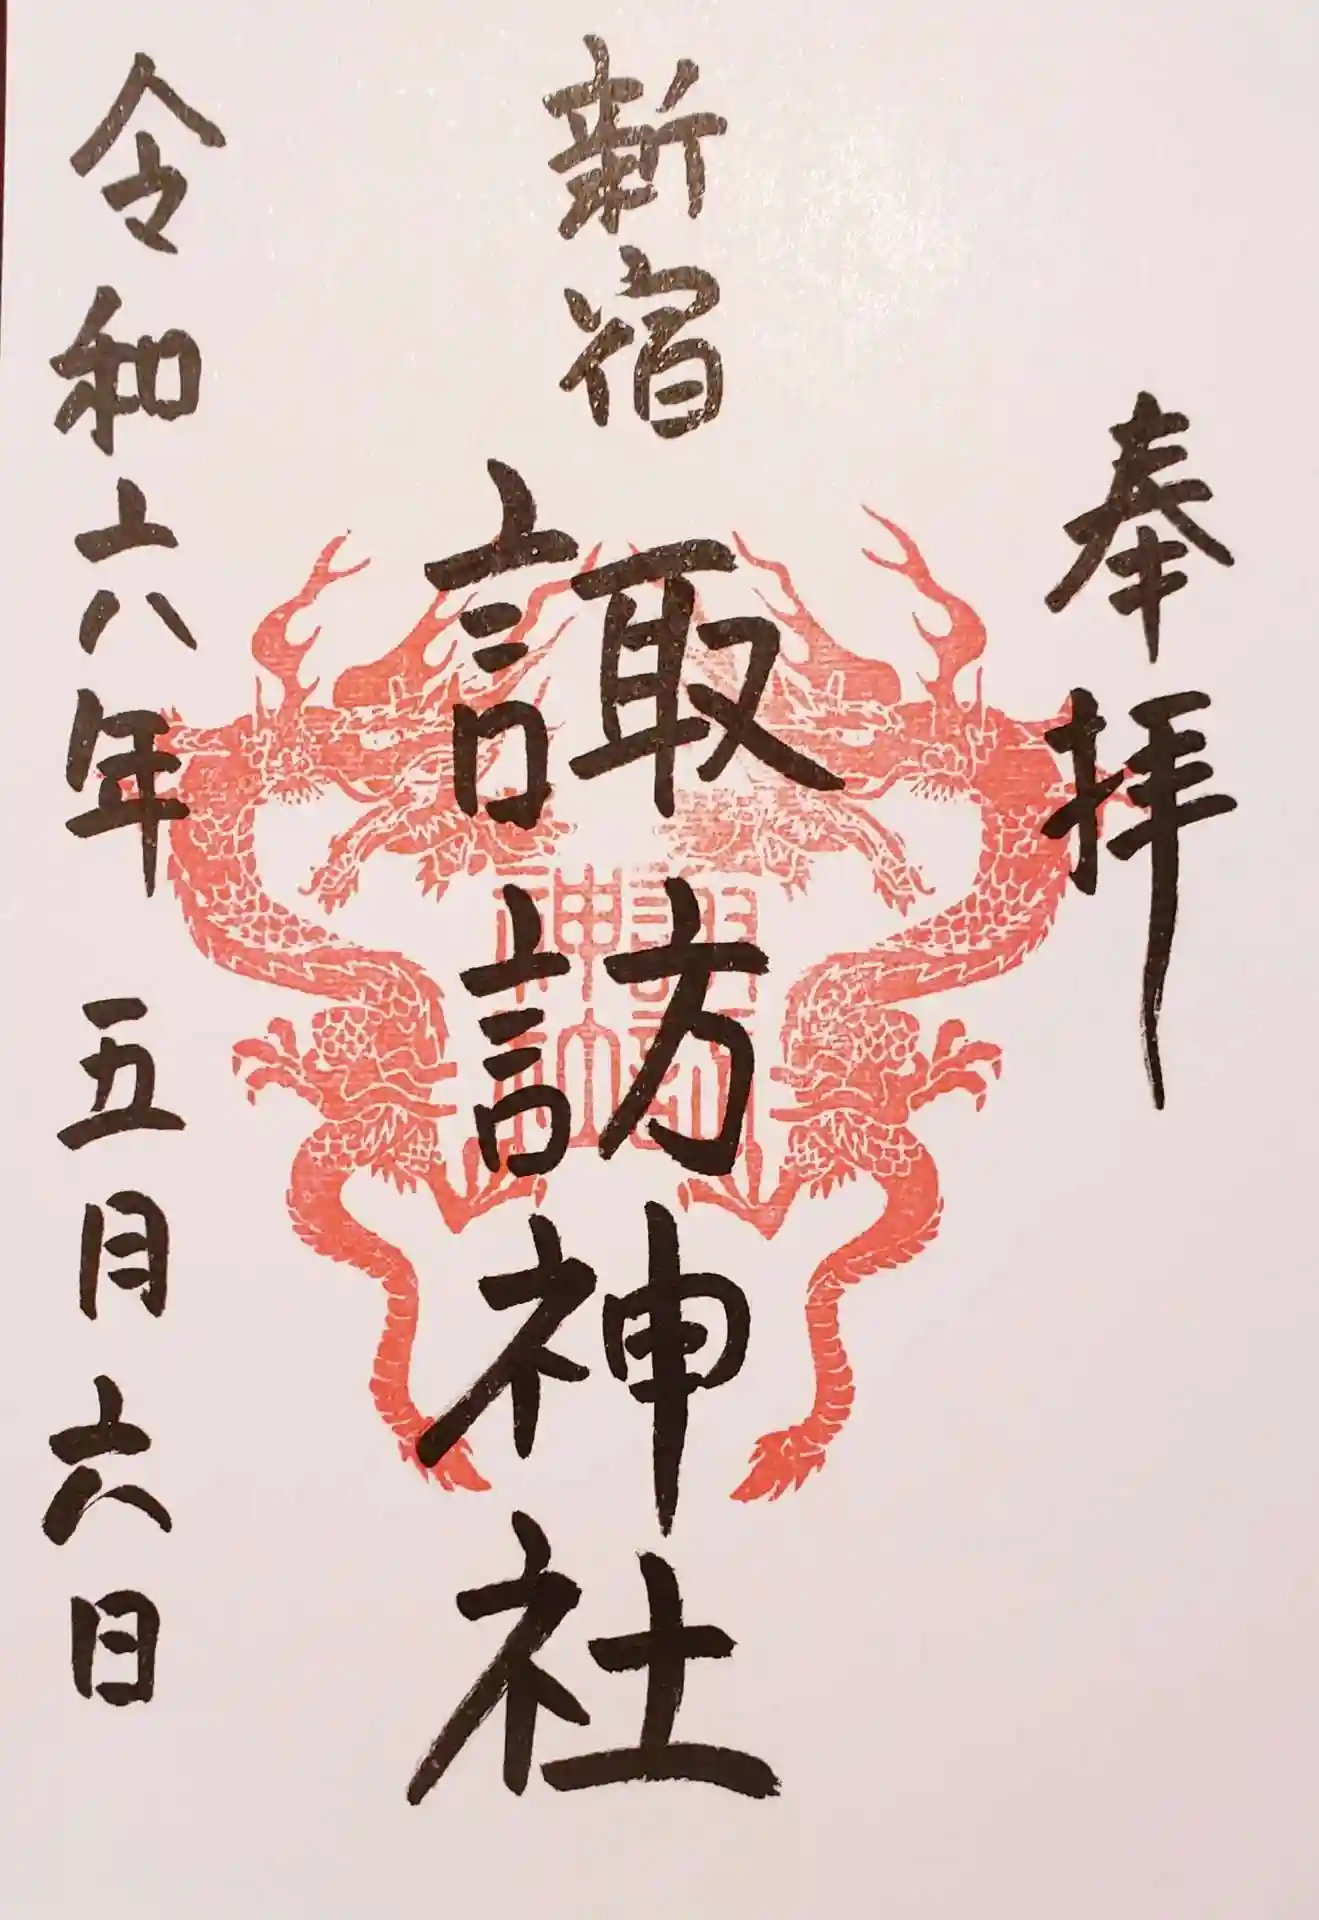 奉拝
新宿
諏訪神社
令和六年 五月六日
諏訪
神社